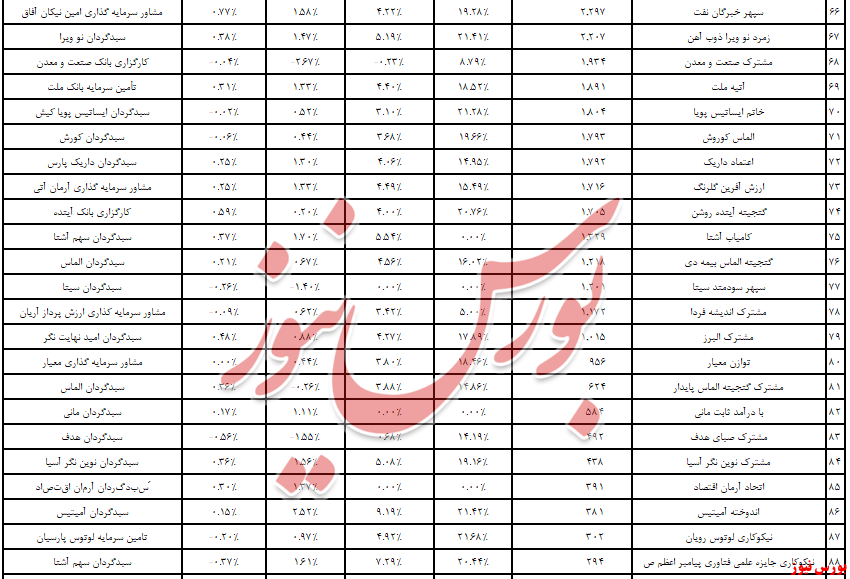 ۶۶ سپهر خبرگان نفت ۲.۲۹۷ ۱۹.۲۸٪ ۴.۲۲٪ ۱.۵۸٪ ۰.۷۷٪ مشاور سرمایه گذاری امین نیکان آفاق
۶۷ زمرد نو ویرا ذوب آهن ۲.۲۰۷ ۲۱.۴۱٪ ۵.۱۹٪ ۱.۴۷٪ ۰.۳۸٪ سبدگردان نو ویرا
۶۸ مشترک صنعت و معدن ۱.۹۳۴ ۸.۷۹٪ -۰.۲۳٪ -۲.۶۷٪ -۰.۰۴٪ کارگزاری بانک صنعت و معدن
۶۹ آتیه ملت ۱.۸۹۱ ۱۸.۵۲٪ ۴.۴۰٪ ۱.۳۳٪ ۰.۳۱٪ تأمین سرمایه بانک ملت
۷۰ خاتم ایساتیس پویا ۱.۸۰۴ ۲۱.۲۸٪ ۳.۱۰٪ ۰.۵۲٪ -۰.۰۲٪ سبدگردان ایساتیس پویا کیش
۷۱ الماس کوروش ۱.۷۹۳ ۱۹.۶۶٪ ۳.۶۸٪ ۰.۴۴٪ -۰.۰۶٪ سبدگردان کورش
۷۲ اعتماد داریک ۱.۷۹۲ ۱۴.۹۵٪ ۴.۰۶٪ ۱.۳۰٪ ۰.۲۵٪ سبدگردان داریک پارس
۷۳ ارزش آفرین گلرنگ ۱.۷۱۶ ۱۵.۴۹٪ ۴.۴۹٪ ۱.۳۳٪ ۰.۲۵٪ مشاور سرمایه گذاری آرمان آتی
۷۴ گنجینه آینده روشن ۱.۷۰۵ ۲۰.۷۶٪ ۴.۰۰٪ ۰.۲۰٪ ۰.۵۹٪ کارگزاری بانک آینده
۷۵ کامیاب آشنا ۱.۳۲۹ ۰.۰۰٪ ۵.۵۴٪ ۱.۷۰٪ ۰.۳۷٪ سبدگردان سهم آشنا
۷۶ گنجینه الماس بیمه دی ۱.۲۱۸ ۱۶.۰۲٪ ۴.۵۶٪ ۰.۶۷٪ ۰.۲۱٪ سبدگردان الماس
۷۷ سپهر سودمند سینا ۱.۲۰۱ ۰.۰۰٪ ۰.۰۰٪ -۱.۴۰٪ -۰.۲۶٪ سبدگردان سینا
۷۸ مشترک اندیشه فردا ۱.۱۷۲ ۵.۰۰٪ ۳.۴۲٪ ۰.۶۲٪ -۰.۰۹٪ مشاور سرمایه گذاری ارزش پرداز آریان
۷۹ مشترک البرز ۱.۰۱۵ ۱۷.۸۹٪ ۴.۲۷٪ ۰.۸۸٪ ۰.۴۸٪ سبدگردان امید نهایت نگر
۸۰ توازن معیار ۹۵۶ ۱۸.۴۶٪ ۳.۸۰٪ ۰.۴۴٪ ۰.۰۰٪ مشاور سرمایه گذاری معیار
۸۱ مشترک گنجینه الماس پایدار ۶۲۴ ۱۴.۸۶٪ ۳.۸۸٪ -۰.۲۶٪ ۰.۳۶٪ سبدگردان الماس
۸۲ با درآمد ثابت مانی ۵۸۴ ۰.۰۰٪ ۰.۰۰٪ ۱.۱۱٪ ۰.۱۷٪ سبدگردان مانی
۸۳ مشترک صبای هدف ۴۹۲ ۱۴.۱۹٪ ۰.۶۸٪ -۱.۵۵٪ -۰.۵۶٪ سبدگردان هدف
۸۴ مشترک نوین نگر آسیا ۴۳۸ ۱۹.۱۶٪ ۵.۰۸٪ ۱.۵۶٪ ۰.۳۶٪ سبدگردان نوین نگر آسیا
۸۵ اتحاد آرمان اقتصاد ۳۹۱ ۰.۰۰٪ ۰.۰۰٪ ۱.۳۷٪ ۰.۳۰٪ سبدگردان آرمان اقتصاد
۸۶ اندوخته آمیتیس ۳۸۱ ۲۱.۴۲٪ ۹.۱۹٪ ۲.۵۲٪ ۰.۱۵٪ سبدگردان آمیتیس
۸۷ نیکوکاری لوتوس رویان ۳۰۲ ۲۱.۶۸٪ ۴.۹۲٪ ۰.۹۷٪ -۰.۲۰٪ تامین سرمایه لوتوس پارسیان
۸۸ نیکوکاری جایزه علمی فناوری پیامبر اعظم ص ۲۹۴ ۲۰.۴۴٪ ۷.۲۹٪ ۱.۶۱٪ -۰.۳۷٪ سبدگردان سهم آشنا
بورس نیوز
بورس نیوز